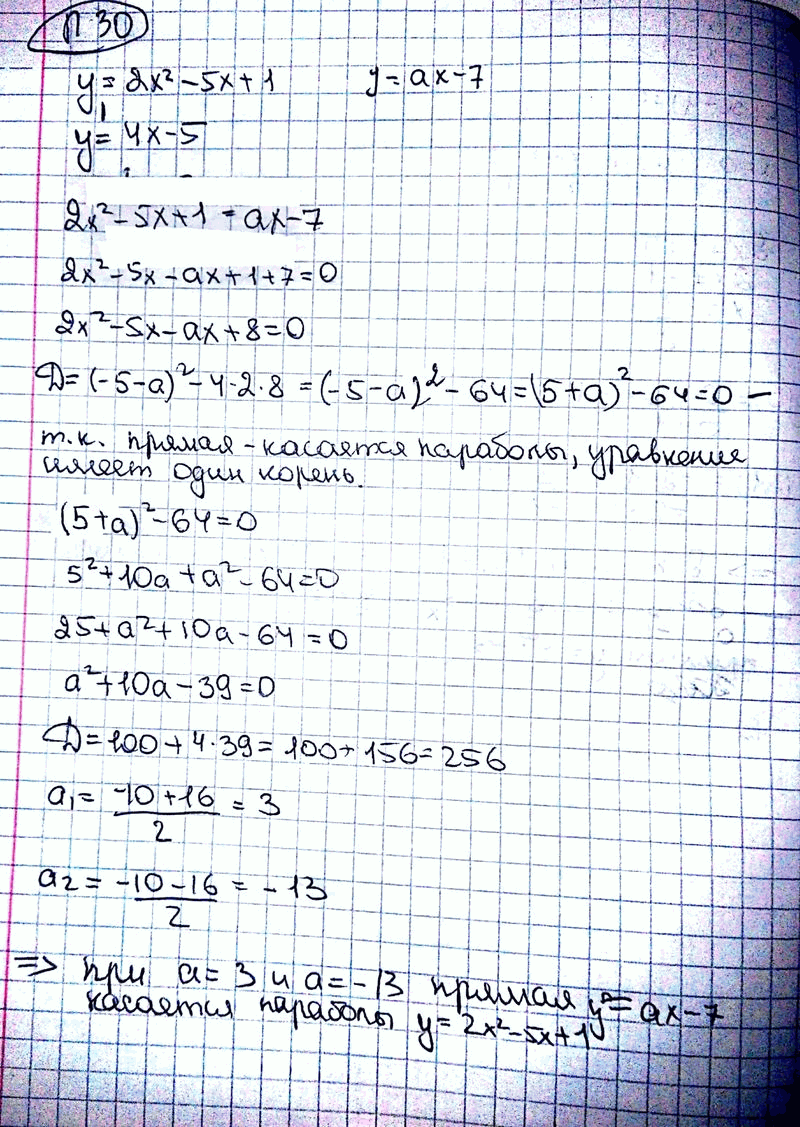 П 30
y = 2x² - 5x + 1 y = ax - 7
y' = 4x - 5
2x² - 5x + 1 = ax - 7
2x² - 5x - ax + 1 + 7 = 0
2x² - 5x - ax + 8 = 0
D = (-5 - a)² - 4·2·8 = (-5 - a)² - 64 = (5 + a)² - 64 = 0 —
т.к. прямая - касается параболы, уравнение
имеет один корень.
(5 + a)² - 64 = 0
5² + 10a + a² - 64 = 0
25 + a² + 10a - 64 = 0
a² + 10a - 39 = 0
D = 100 + 4·39 = 100 + 156 = 256
a₁ = (-10 + 16)/2 = 3
a₂ = (-10 - 16)/2 = -13
=> при a = 3 и a = -13 прямая y = ax - 7
касается параболы y = 2x² - 5x + 1